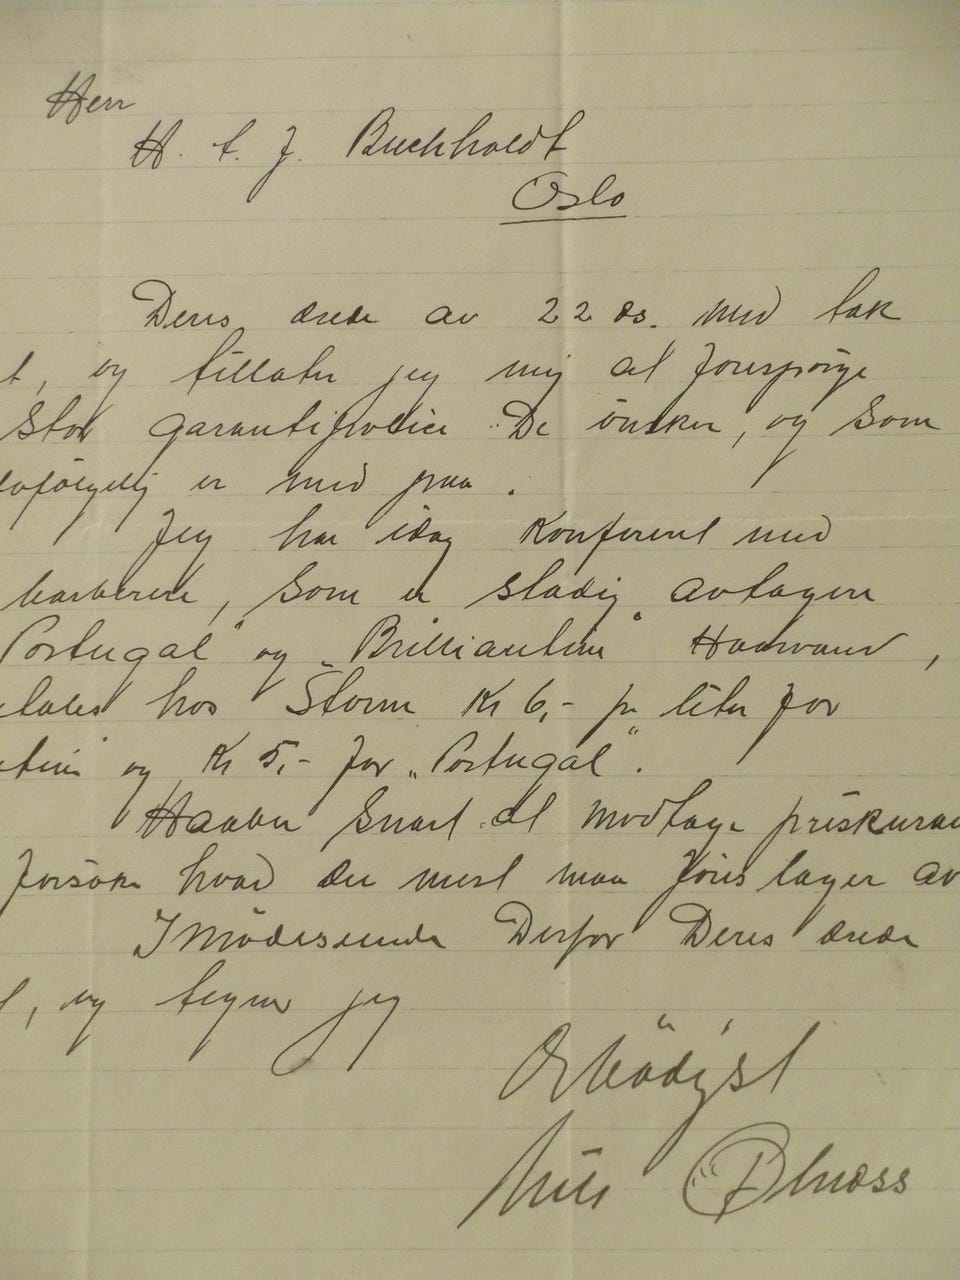 Herr
H. t. J. Buchholdt
Oslo
Deres ærede av 22 ds. med tak
t, og tillater jeg mig at forespørge
stor garantipolice De ønsker, og som
er med paa.
Jeg har idag konferert med
barberere, som er stadig avtagere
Portugal" og "Brilliantin" Haarvand,
hos Storm Kr 6,- pr liter for
og Kr 5,- for "Portugal".
Haaber snart at modtage
forsøke hvad der mest maa føres lager av
Imødeseende Derfor Deres ærede
t, og tegner jeg
Ærbødigst
Nils